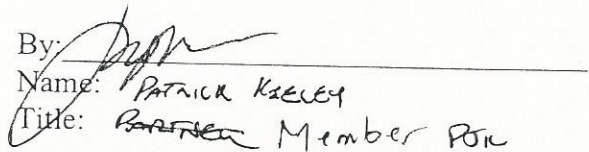 By:
Name: PATRICK KEELEY
Title: PARTNER Member PJK